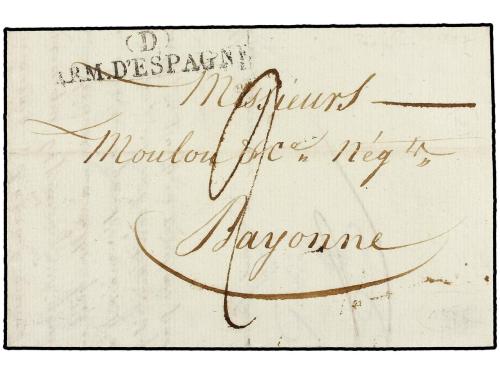 (D)
ARM. D'ESPAGNE
Messieurs
Moulou & Ca. Négts.
Bayonne
2